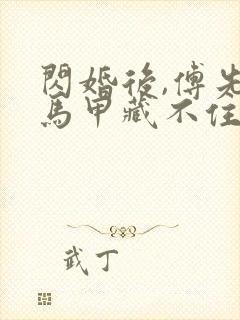 閃婚後,傅先
馬甲藏不住
武丁